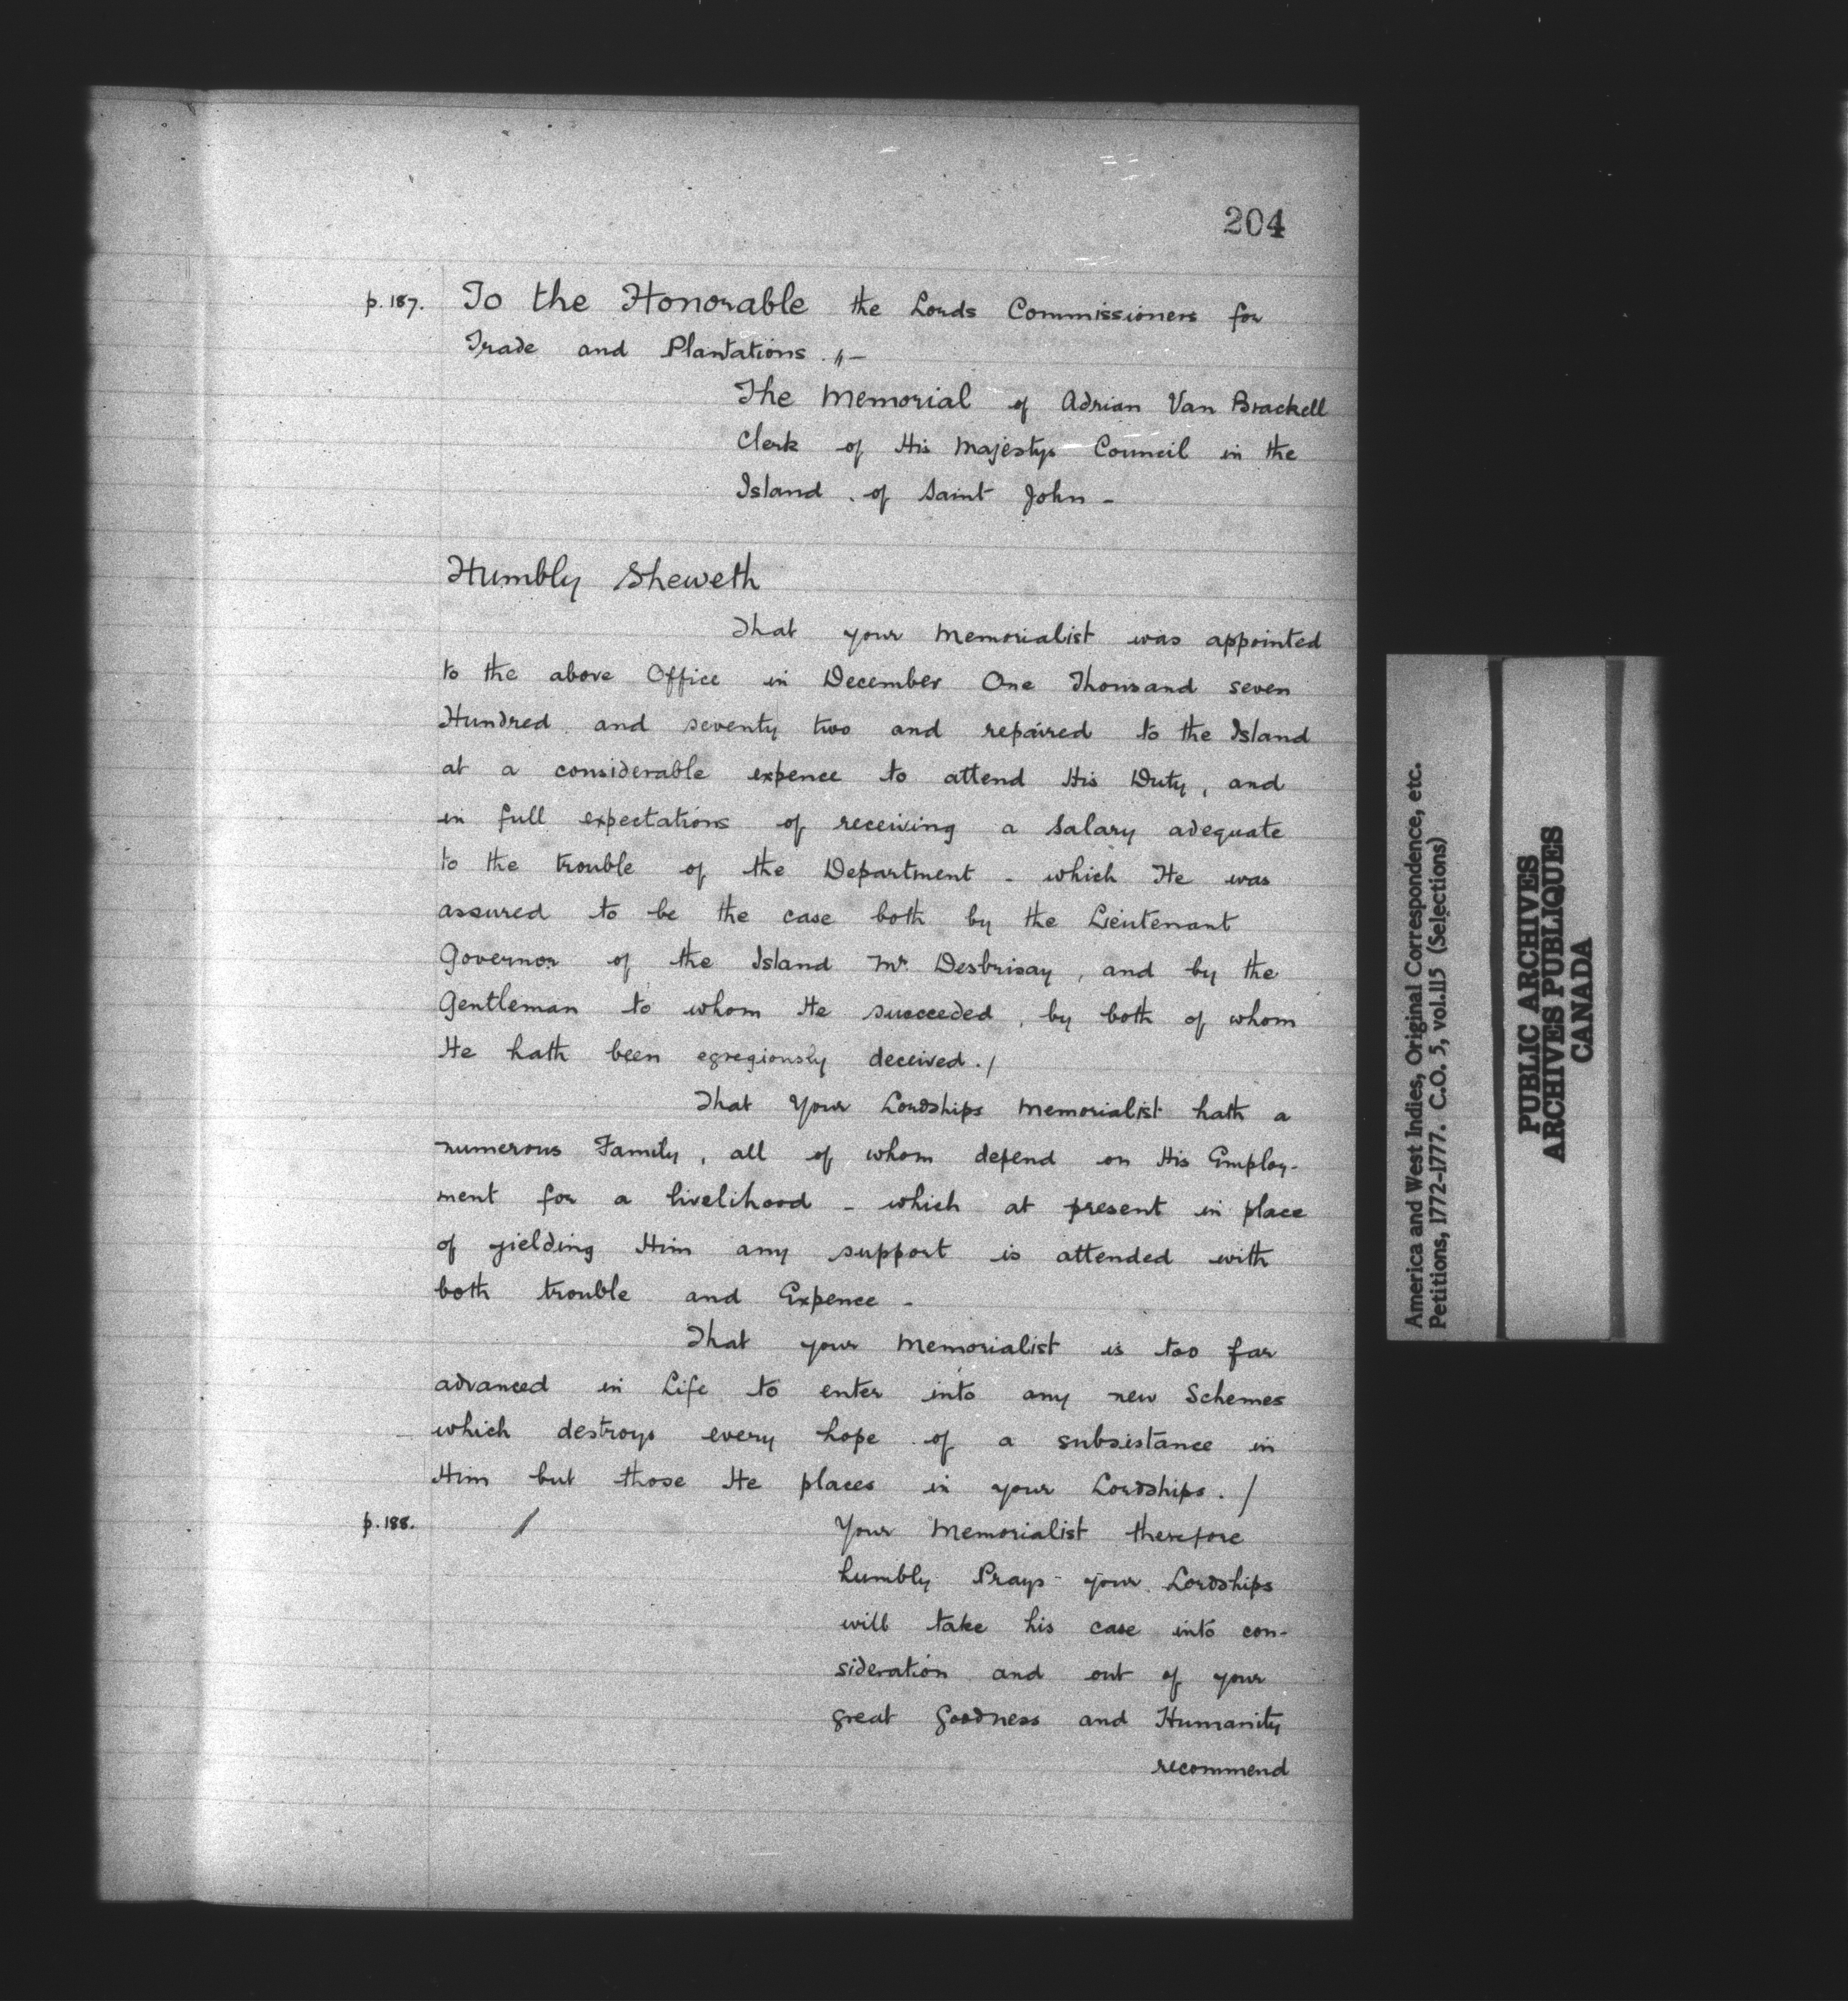 204
p. 187. To the Honorable the Lords Commissioners for
Trade and Plantations. "—
The Memorial of Adrian Van Brackell
Clerk of His Majestys Council in the
Island of Saint John -
Humbly Sheweth
That your Memorialist was appointed
to the above Office in December One Thousand seven
Hundred and seventy two and repaired to the Island
at a considerable expence to attend His Duty, and
in full expectations of receiving a Salary adequate
to the trouble of the Department - which He was
assured to be the case both by the Lieutenant
Governor of the Island Mr. Desbrisay, and by the
Gentleman to whom He succeeded, by both of whom
He hath been egregiously deceived. /
That Your Lordships Memorialist hath a
numerous Family, all of whom depend on His Employ-
ment for a livelihood - which at present in place
of yielding Him any support is attended with
both trouble and Expence -
That your Memorialist is too far
advanced in Life to enter into any new Schemes
which destroys every hope of a subsistance in
Him but those He places in your Lordships. /
p. 188. / Your Memorialist therefore
humbly Prays your Lordships
will take his case into con-
sideration and out of your
great Goodness and Humanity
recommend
America and West Indies, Original Correspondence, etc.
Petitions, 1772-1777. C.O. 5, vol.115 (Selections)
PUBLIC ARCHIVES
ARCHIVES PUBLIQUES
CANADA